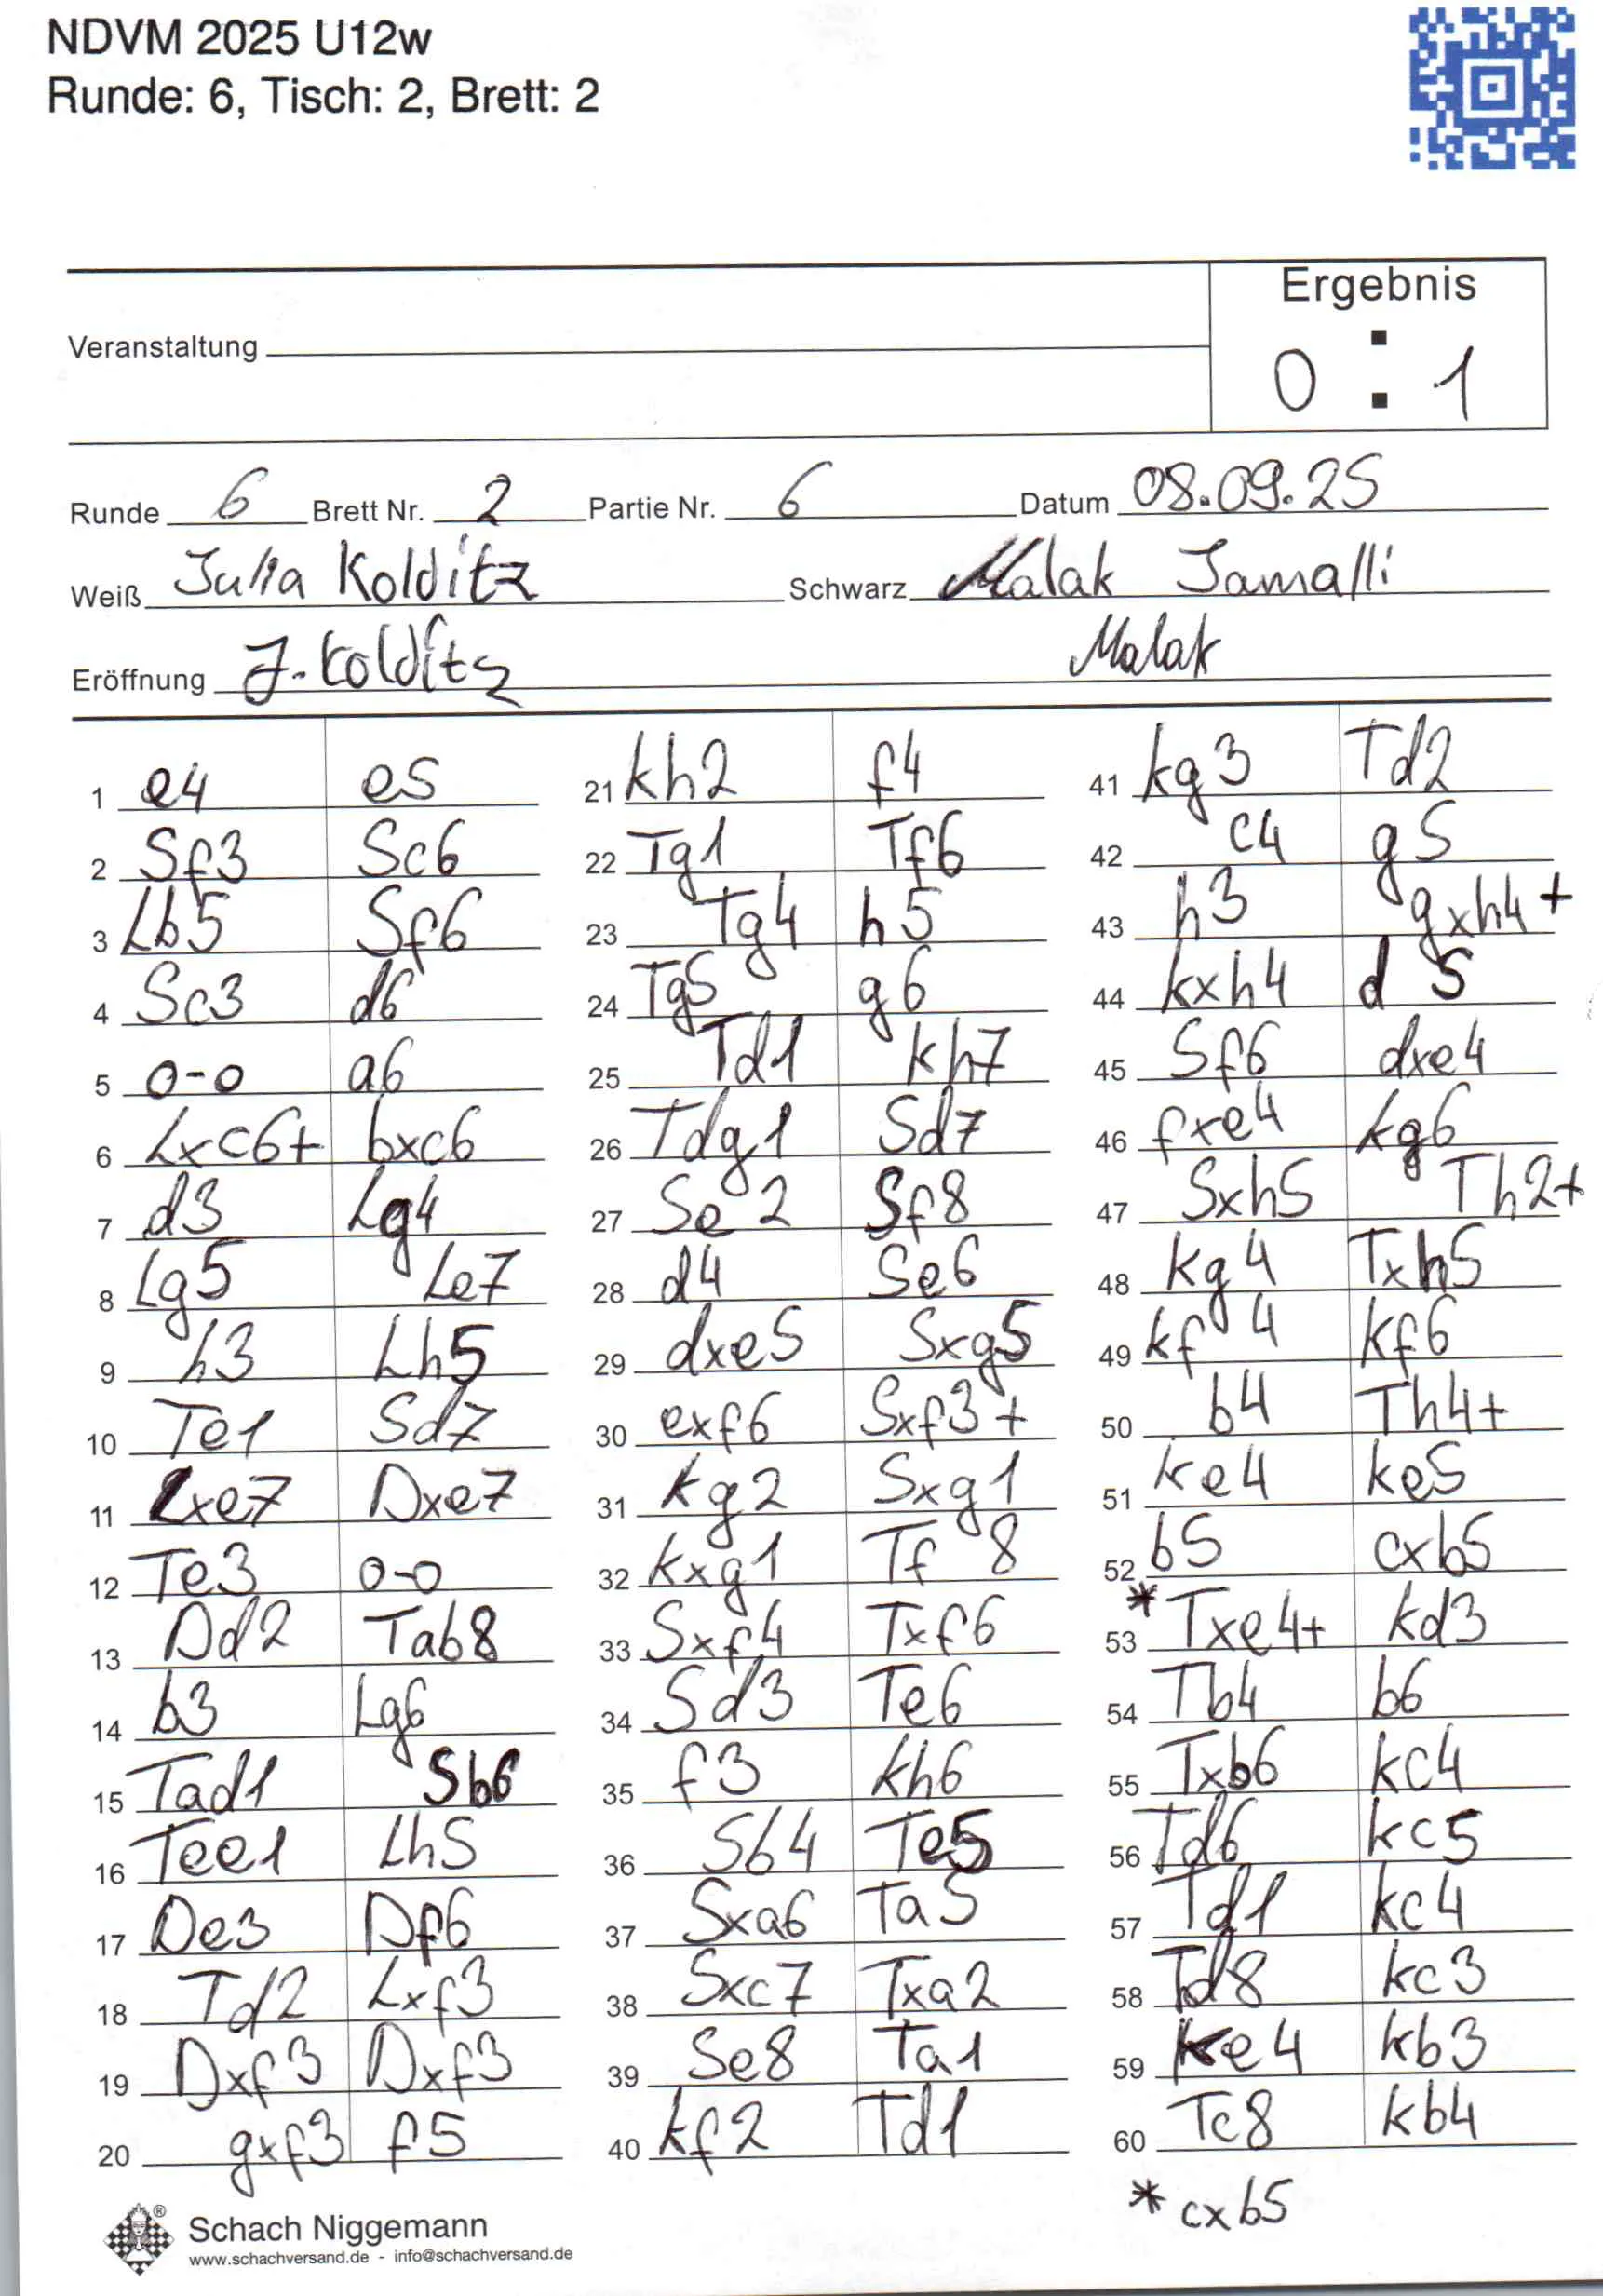 NDVM 2025 U12w
Runde: 6, Tisch: 2, Brett: 2
Ergebnis
Veranstaltung
0 : 1
Runde 6 Brett Nr. 2 Partie Nr. 6 Datum 08.09.25
Weiß Julia Kolditz Schwarz Malak Jamalli
Malak
Eröffnung J. Kolditz
1 e4 e5
2 Sf3 Sc6
3 Lb5 Sf6
4 Sc3 d6
5 0-0 a6
6 Lxc6+ bxc6
7 d3 Lg4
8 Lg5 Le7
9 h3 Lh5
10 Te1 Sd7
11 Lxe7 Dxe7
12 Te3 0-0
13 Dd2 Tab8
14 b3 Lg6
15 Tad1 Sb6
16 Tee1 Lh5
17 De3 Df6
18 Td2 Lxf3
19 Dxf3 Dxf3
20 gxf3 f5
21 Kh2 f4
22 Tg1 Tf6
23 Tg4 h5
24 Tg5 g6
25 Td1 Kh7
26 Tdg1 Sd7
27 Se2 Sf8
28 d4 Se6
29 dxe5 Sxg5
30 exf6 Sxf3+
31 Kg2 Sxg1
32 Kxg1 Tf8
33 Sxf4 Txf6
34 Sd3 Te6
35 f3 Kh6
36 Sb4 Te5
37 Sxa6 Ta5
38 Sxc7 Txa2
39 Se8 Ta1
40 Kf2 Td1
41 Kg3 Td2
42 c4 g5
43 h3 gxh4+
44 Kxh4 d5
45 Sf6 dxe4
46 fxe4 Kg6
47 Sxh5 Th2+
48 Kg4 Txh5
49 Kf4 Kf6
50 b4 Th4+
51 Ke4 Ke5
52 b5 cxb5
53 * Txe4+ Kd3
54 Tb4 b6
55 Txb6 Kc4
56 Td6 Kc5
57 Td1 Kc4
58 Td8 Kc3
59 Ke4 Kb3
60 Tc8 Kb4
* cxb5
®
Schach Niggemann
www.schachversand.de - info@schachversand.de